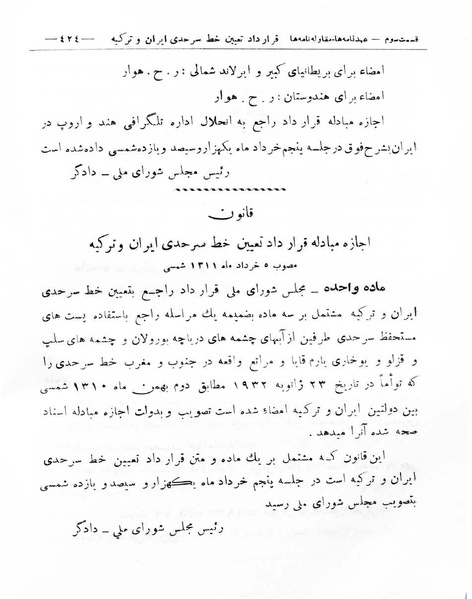 قسمت سوم – عهدنامه‌ها، مقاوله‌نامه‌ها    قرارداد تعیین خط سرحدی ایران و ترکیه    —۴۲۴—
امضاء برای بریطانیای کبیر و ایرلاند شمالی : ر . ح . هوار
امضاء برای هندوستان : ر . ح . هوار
اجازه مبادله قرارداد راجع به انحلال اداره تلگرافی هند و اروپ در
ایران بشرح فوق در جلسه پنجم خرداد ماه یکهزار و سیصد و یازده شمسی داده شده است
رئیس مجلس شورای ملی – دادگر
قانون
اجازه مبادله قرارداد تعیین خط سرحدی ایران و ترکیه
مصوب ۵ خرداد ماه ۱۳۱۱ شمسی
ماده واحده – مجلس شورای ملی قرارداد راجع بتعیین خط سرحدی
ایران و ترکیه مشتمل بر سه ماده بضمیمه یك مراسله راجع باستفاده پست های
مستحفظ سرحدی طرفین از آبهای چشمه های دریاچه بورولان و چشمه های سلپ
و قزلو و یوخاری یارم قایا و مراتع واقعه در جنوب و مغرب خط سرحدی را
که توأماً در تاریخ ۲۳ ژانویه ۱۹۳۲ مطابق دوم بهمن ماه ۱۳۱۰ شمسی
بین دولتین ایران و ترکیه امضاء شده است تصویب و بدولت اجازه مبادله اسناد
صحه شده آنرا میدهد .
این قانون که مشتمل بر یك ماده و متن قرارداد تعیین خط سرحدی
ایران و ترکیه است در جلسه پنجم خرداد ماه یکهزار و سیصد و یازده شمسی
بتصویب مجلس شورای ملی رسید
رئیس مجلس شورای ملی – دادگر